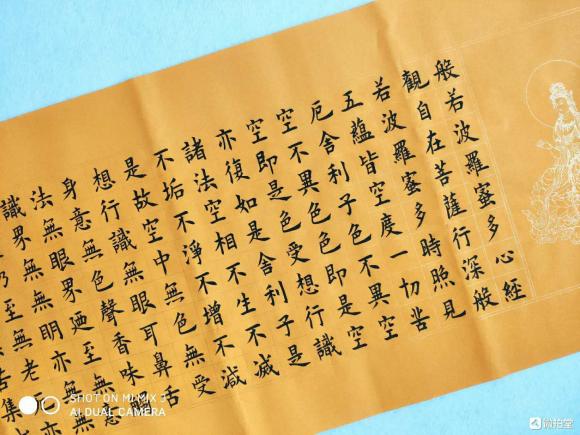 般若波羅蜜多心經
觀自在菩薩行深般
若波羅蜜多時照見
五蘊皆空度一切苦
厄舍利子色不異空
空不異色色即是空
空即是色受想行識
亦復如是舍利子是
諸法空相不生不滅
不垢不淨不增不減
是故空中無色無受
想行識無眼耳鼻舌
身意無色聲香味
法無眼界廼至無意
識界無無明亦無
乃至無老
集
SHOT ON MI MIX 3
AI DUAL CAMERA
微拍堂